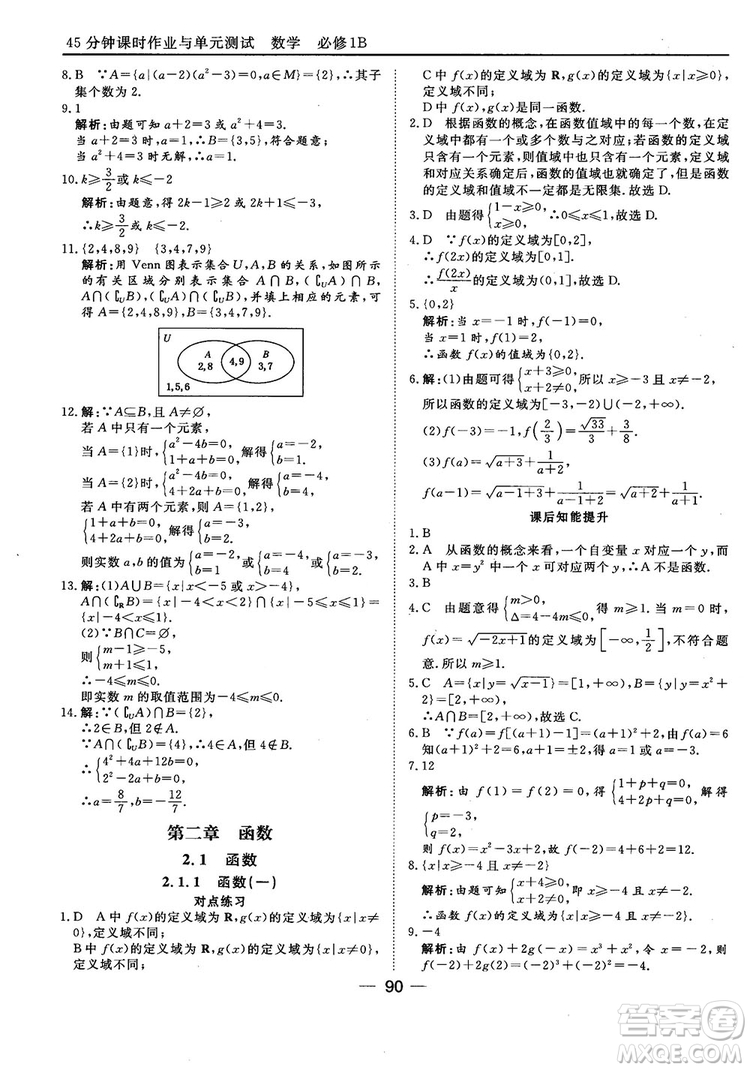 45 分钟课时作业与单元测试 数学 必修1B
8. B ∵A={a|(a-2)(a²-3)=0, a∈M}={2}, ∴其子
集个数为 2.
9. 1
解析:由题可知 a+2=3 或 a²+4=3.
当 a+2=3 时,a=1,A∩B={3,5},符合题意;
当 a²+4=3 时无解.
10. k≥3/2 或 k≤-2
解析:由题意得 2k-1≥2 或 2k+1≤-3,
∴k≥3/2 或 k≤-2.
11. {2,4,8,9} {3,4,7,9}
解析:用 Venn 图表示集合 U,A,B 的关系,在如图所示
的有关区域分别表示集合 A∩B,(∁UA)∩B,
A∩(∁UB),(∁UA)∩(∁UB),并填上相应的元素,可
得 A={2,4,8,9},B={3,4,7,9}.
U
A B
2,8 4,9 3,7
1,5,6
12. 解:∵A⊆B,且 A≠∅,
若 A 中只有一个元素,
当 A={1}时,{a²-4b=0, 1+a+b=0, 解得{a=-2, b=1.
当 A={2}时,{a²-4b=0, 4+2a+b=0, 解得{a=-4, b=4.
若 A 中有两个元素,则 A={1,2},
{1+a+b=0, 4+2a+b=0, 解得{a=-3, b=2.
则实数 a,b 的值为{a=-2, b=1或{a=-4, b=4或{a=-3, b=2.
13. 解:(1)A∪B={x|x<-5 或 x>-4},
A∩(∁RB)={x|-4<x<2}∩{x|-5≤x≤1}=
{x|-4<x≤1}.
(2)∵B∩C=∅,
则{m-1≥-5, m+1≤1.
∴-4≤m≤0.
即实数 m 的取值范围为[-4,0].
14. 解:∵(∁UA)∩B={2},
∴2∈B,但 2∉A.
∵A∩(∁UB)={4},∴4∈A,但 4∉B.
∴{4²+4a+12b=0, 2²-2a+b=0.
∴a=8/7, b=-12/7.
第二章 函数
2.1 函数
2.1.1 函数(一)
对点练习
1. D A 中 f(x)的定义域为 R,g(x)的定义域为{x|x≠
0},定义域不同;
B 中 f(x)的定义域为 R,g(x)的定义域为{x|x≠0},
定义域不同;
C 中 f(x)的定义域为 R,g(x)的定义域为{x|x≥0},
定义域不同;
D 中 f(x)与 g(x)是同一函数.
2. D 根据函数的概念,在函数值域中的每一个数,在定
义域中可以有一个或多个元素与之对应,若函数的定义域
只含有一个元素,则值域也只有一个元素,函数定义域
和对应关系确定后,函数的值域也就确定,但函数的定
义域和值域不一定是无限集.故选 D.
3. D 由题得{1-x≥0, x≥0, ∴0≤x≤1,故选 D.
4. D ∵f(x)的定义域为[0,2],
∴f(2x)的定义域为[0,1].
∴f(2x)/x的定义域为(0,1],故选 D.
5. {0,2}
解析:当 x=-1 时,y=2;当 x=0 时,y=0;
当 x=1 时,y=0.
∴函数 f(x)的值域为{0,2}.
6. 解:(1)由题可得{x+3≥0, x+2≠0, 所以 x≥-3 且 x≠-2,
所以函数的定义域为[-3,-2)∪(-2,+∞).
(2)f(-3)=-1,f(2/3)=√33/3+3/8.
(3)f(a)=√a+3+1/(a+2),
f(a-1)=√a-1+3+1/(a-1+2)=√a+2+1/(a+1).
课后知能提升
1. B
2. A 从函数的概念来看,一个自变量 x 对应一个 y,而
A 中 x=y² 中一个 x 对应两个 y.∴A 不是函数.
3. B
4. C 由题意得{m>0, Δ=4-4m≤0, 得 m≥1.当 m=0 时,
f(x)=√-2x+1的定义域为[-∞,1/2],不符合题
意.所以 m≥1.
5. C A={x|y=√x-1}={x|x≥1},B={y|y=x²+
2}={y|y≥2},
∴A∩B={x|x≥2},故选 C.
6. B ∵f(a)=f[(a+1)-1]=(a+1)²+2,由 f(a)=6
知(a+1)²+2=6,∴a+1=±2,∴a=1 或 a=-3.
7. 12
解析:由题意知方程组有{1+p+q=0, 4+2p+q=0, 解得
{p=-3, q=2,
则 f(x)=x²-3x+2,∴f(-1)=2+4+6=12.
8. {x|x≥-4 且 x≠-3}
解析:由题意得{x+4≥0, x+3≠0, 即 x≥-4 且 x≠-3.
9. -4
解析:由题意得 f(x)+2g(x)=x³+x²,令 x=-2,则
f(-2)+2g(-2)=(-2)³+(-2)²=-8+4=-4.
90
MXQE.COM